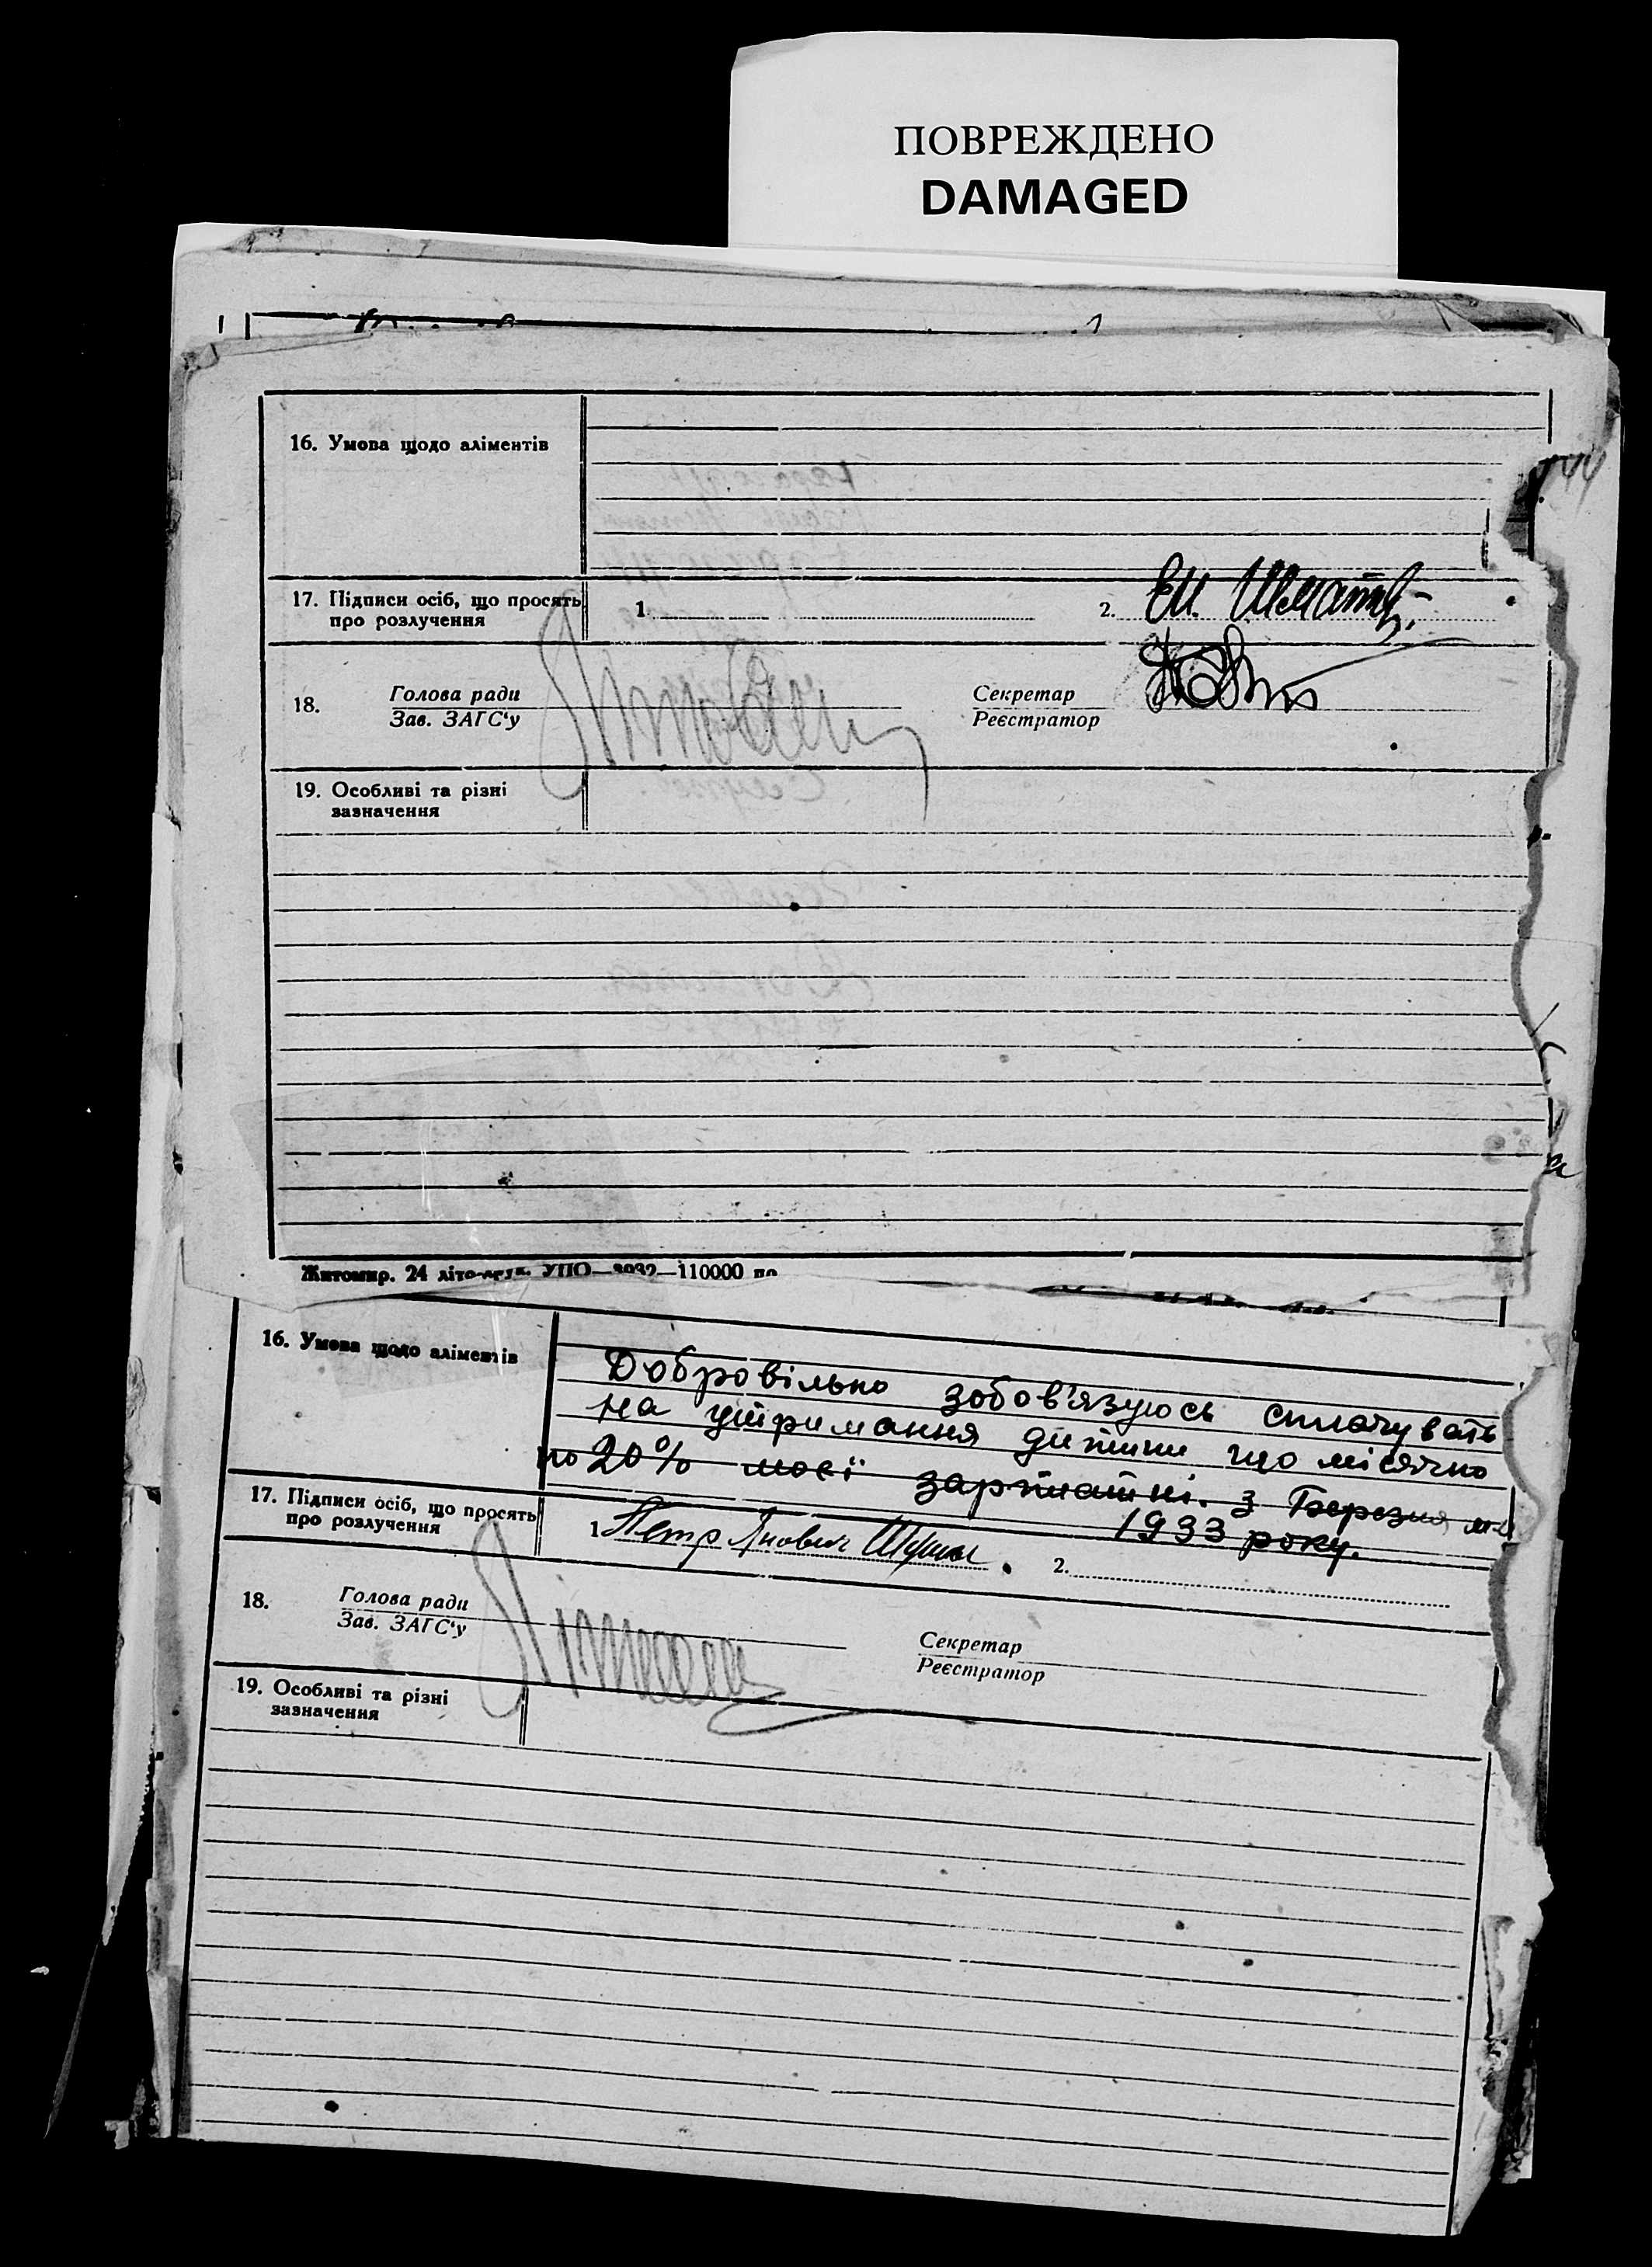 ПОВРЕЖДЕНО
DAMAGED
16. Умова щодо аліментів
17. Підписи осіб, що просять
про розлучення
1.
2.
18.
Голова ради
Зав. ЗАГС'у
Секретар
Реєстратор
19. Особливі та різні
зазначення
Житомир. 24 110000
16. Умова щодо аліментів
Добровільно зобов'язуюсь сплачувать
на утримання дитини що місячно
по 20% моєї зарплатні. з Березня м-ця
1933 року.
17. Підписи осіб, що просять
про розлучення
1. Петр
2.
18.
Голова ради
Зав. ЗАГС'у
Секретар
Реєстратор
19. Особливі та різні
зазначення